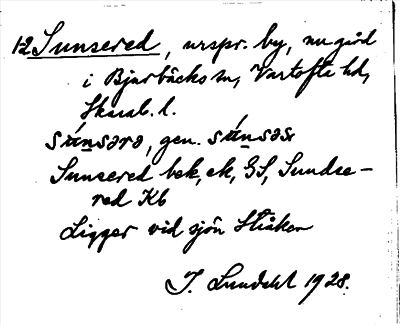 12 Sunsered, urspr. by, nu gård
i Bjurbäcks sn, Vartofta hd,
Skarab. l.
sún̲sərə, gen. sún̲səs
Sunsered bek, ek, GS, Sundse-
red Kb
Ligger vid sjön Stråken
J. Lundahl 1928.